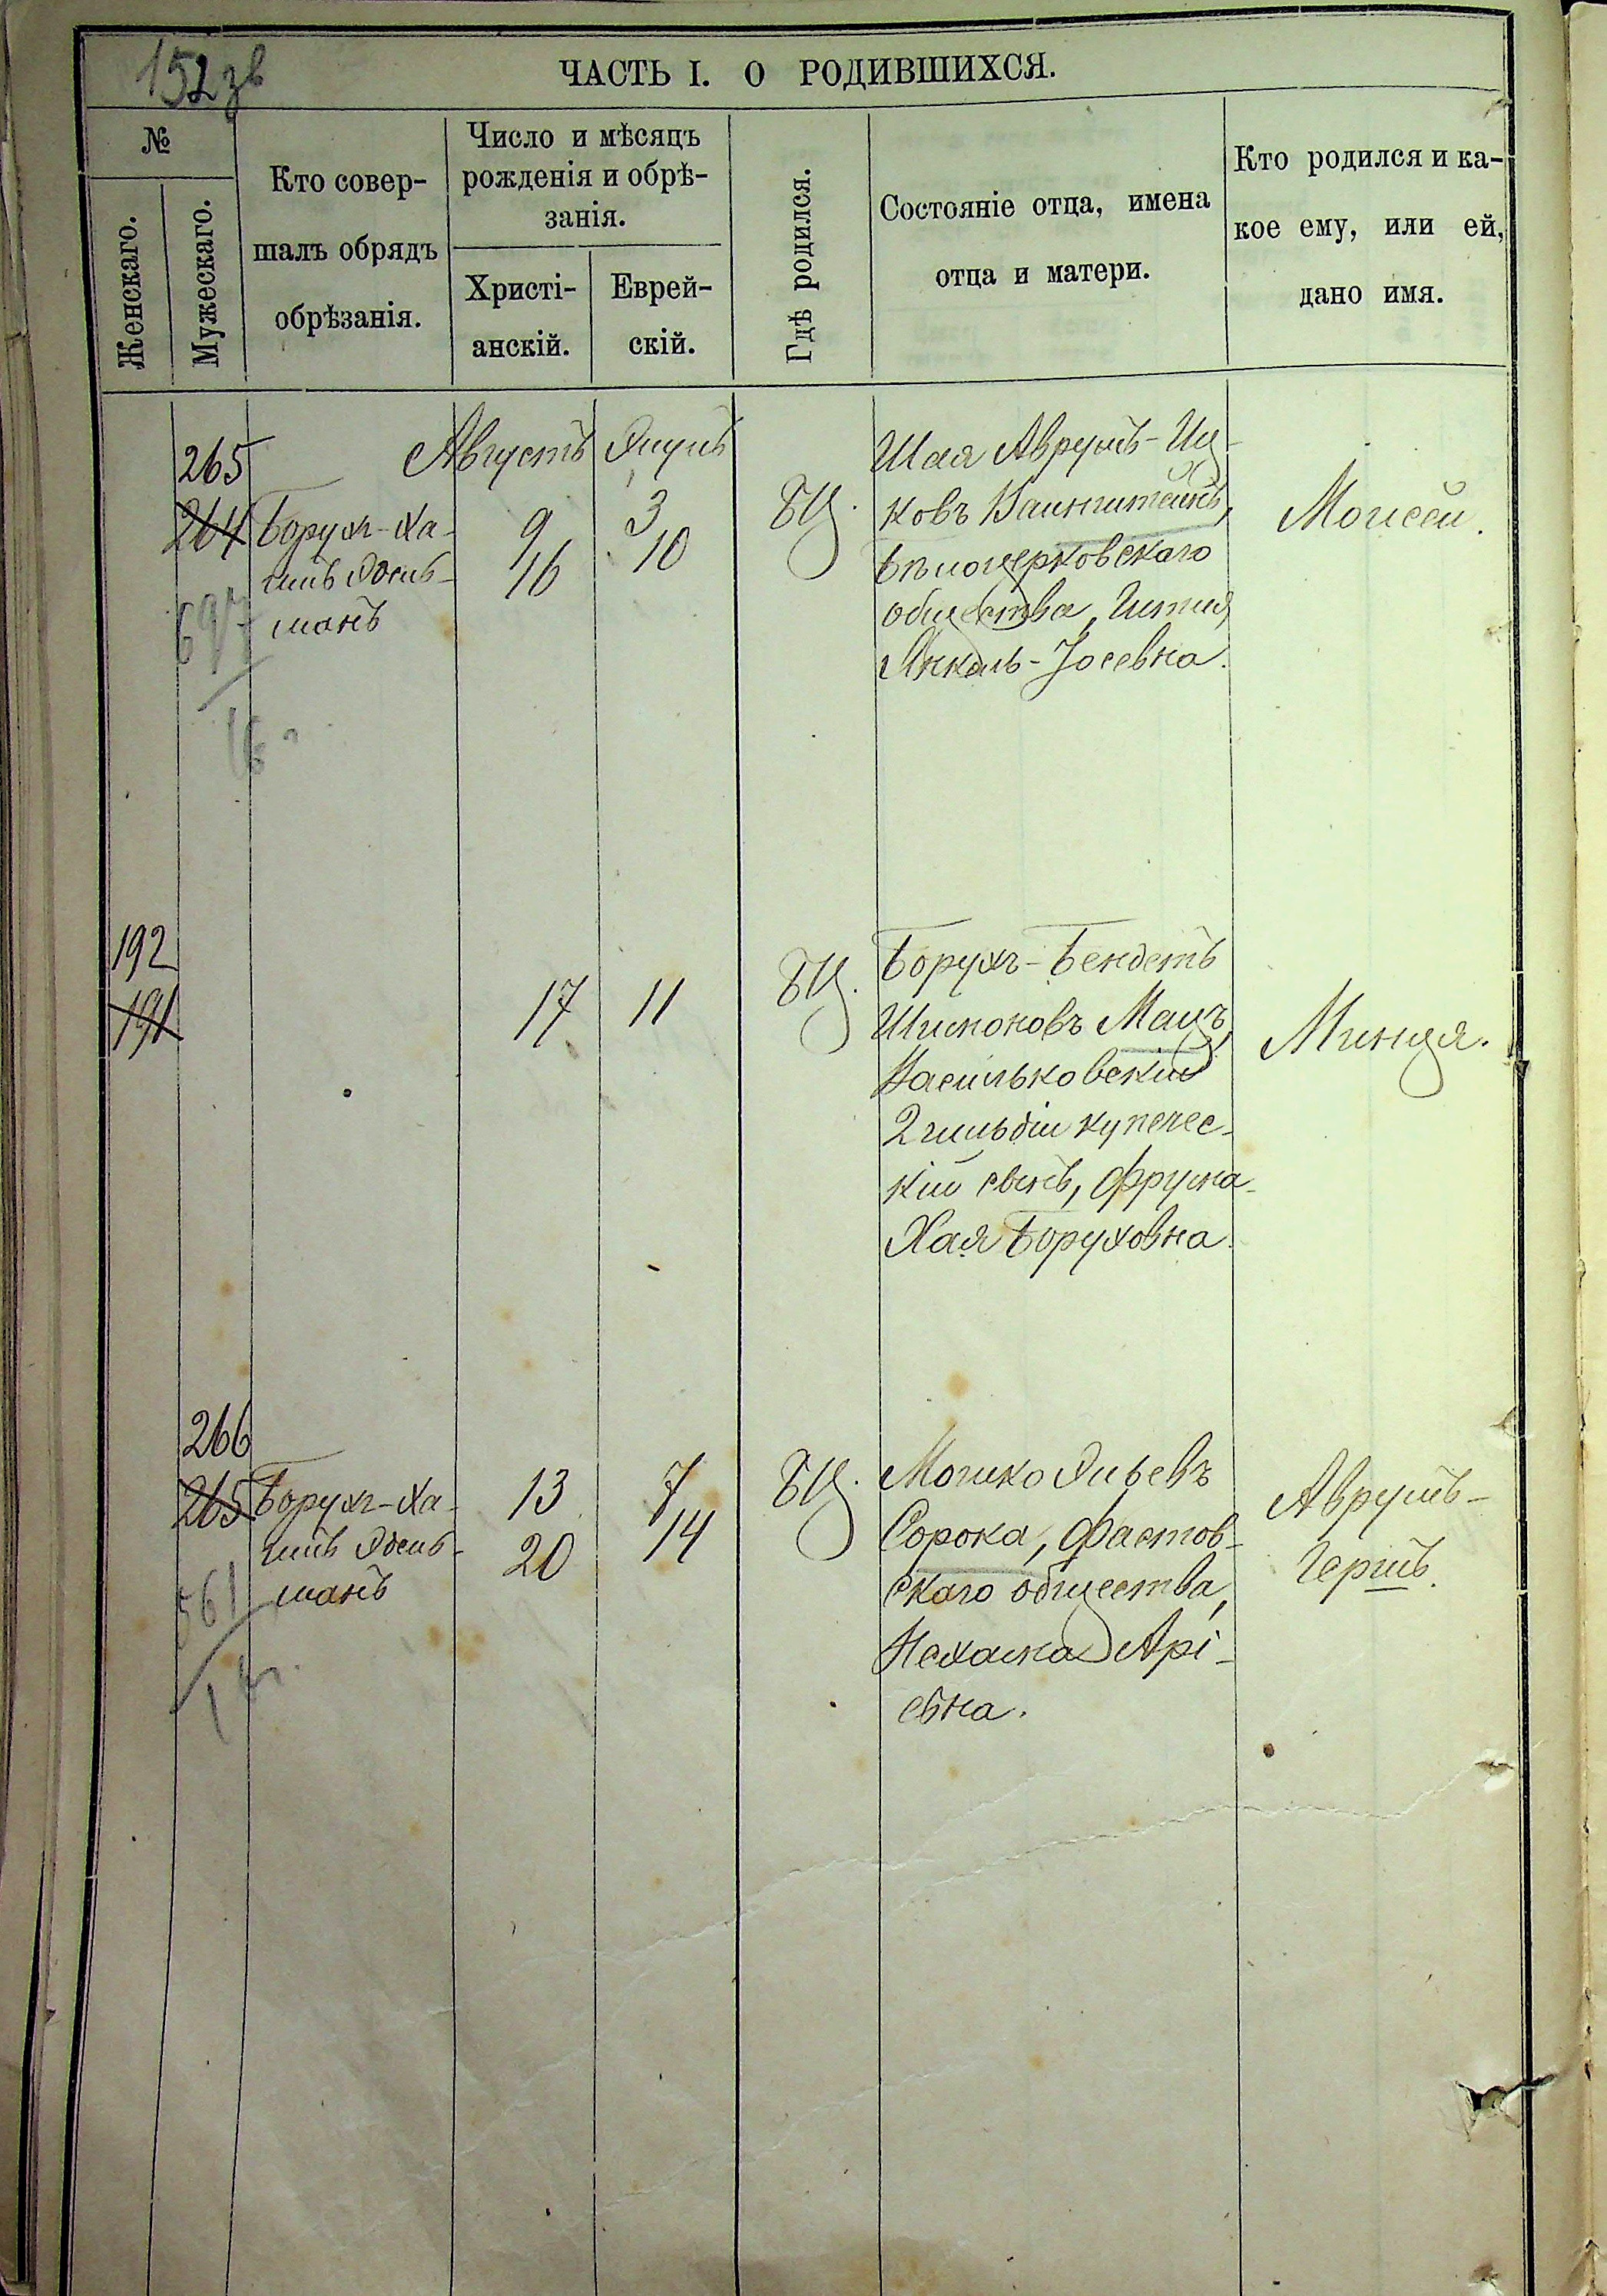 152 зв
ЧАСТЬ I. О РОДИВШИХСЯ.
№
Женскаго.
Мужескаго.
Кто совер-
шалъ обрядъ
обрѣзанія.
Число и мѣсяцъ
рожденія и обрѣ-
занія.
Христі-
анскій.
Еврей-
скій.
Гдѣ родился.
Состояніе отца, имена
отца и матери.
Кто родился и ка-
кое ему, или ей,
дано имя.
Августъ Элулъ
265
264
Борухъ-Ха-
имъ Эдель-
манъ
9
16
3
10
БЦ.
Шая Аврумъ-Иц-
ковъ Ваинштейнъ,
Бѣлоцерковскаго
общества, Гитля
Янкель-Іосевна.
Моисей.
697
192
191
17
11
БЦ.
Борухъ-Бендетъ
Шимоновъ Мацъ,
Васильковскій
2 гильдіи купечес-
кій сынъ, Фрума-
Хая Боруховна.
Минця.
266
265
Борухъ-Ха-
имъ Эдель-
манъ
13
20
7
14
БЦ.
Мошко Эльевъ
Сорока, Фастов-
скаго общества,
Нехама Арі-
евна.
Аврумъ-
Гершъ.
561